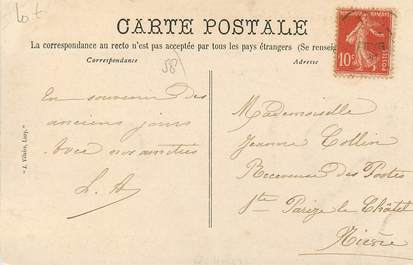 Lot
CARTE POSTALE
La correspondance au recto n'est pas acceptée par tous les pays étrangers (Se renseign
Correspondance
Adresse
58
10c
En souvenir des
anciens jours
Avec nos amitiés
L. A
Mademoiselle
Jeanne Collin
Receveuse des Postes
St Parize le Châtel
Nièvre
"J. Vilaire, Luzy."